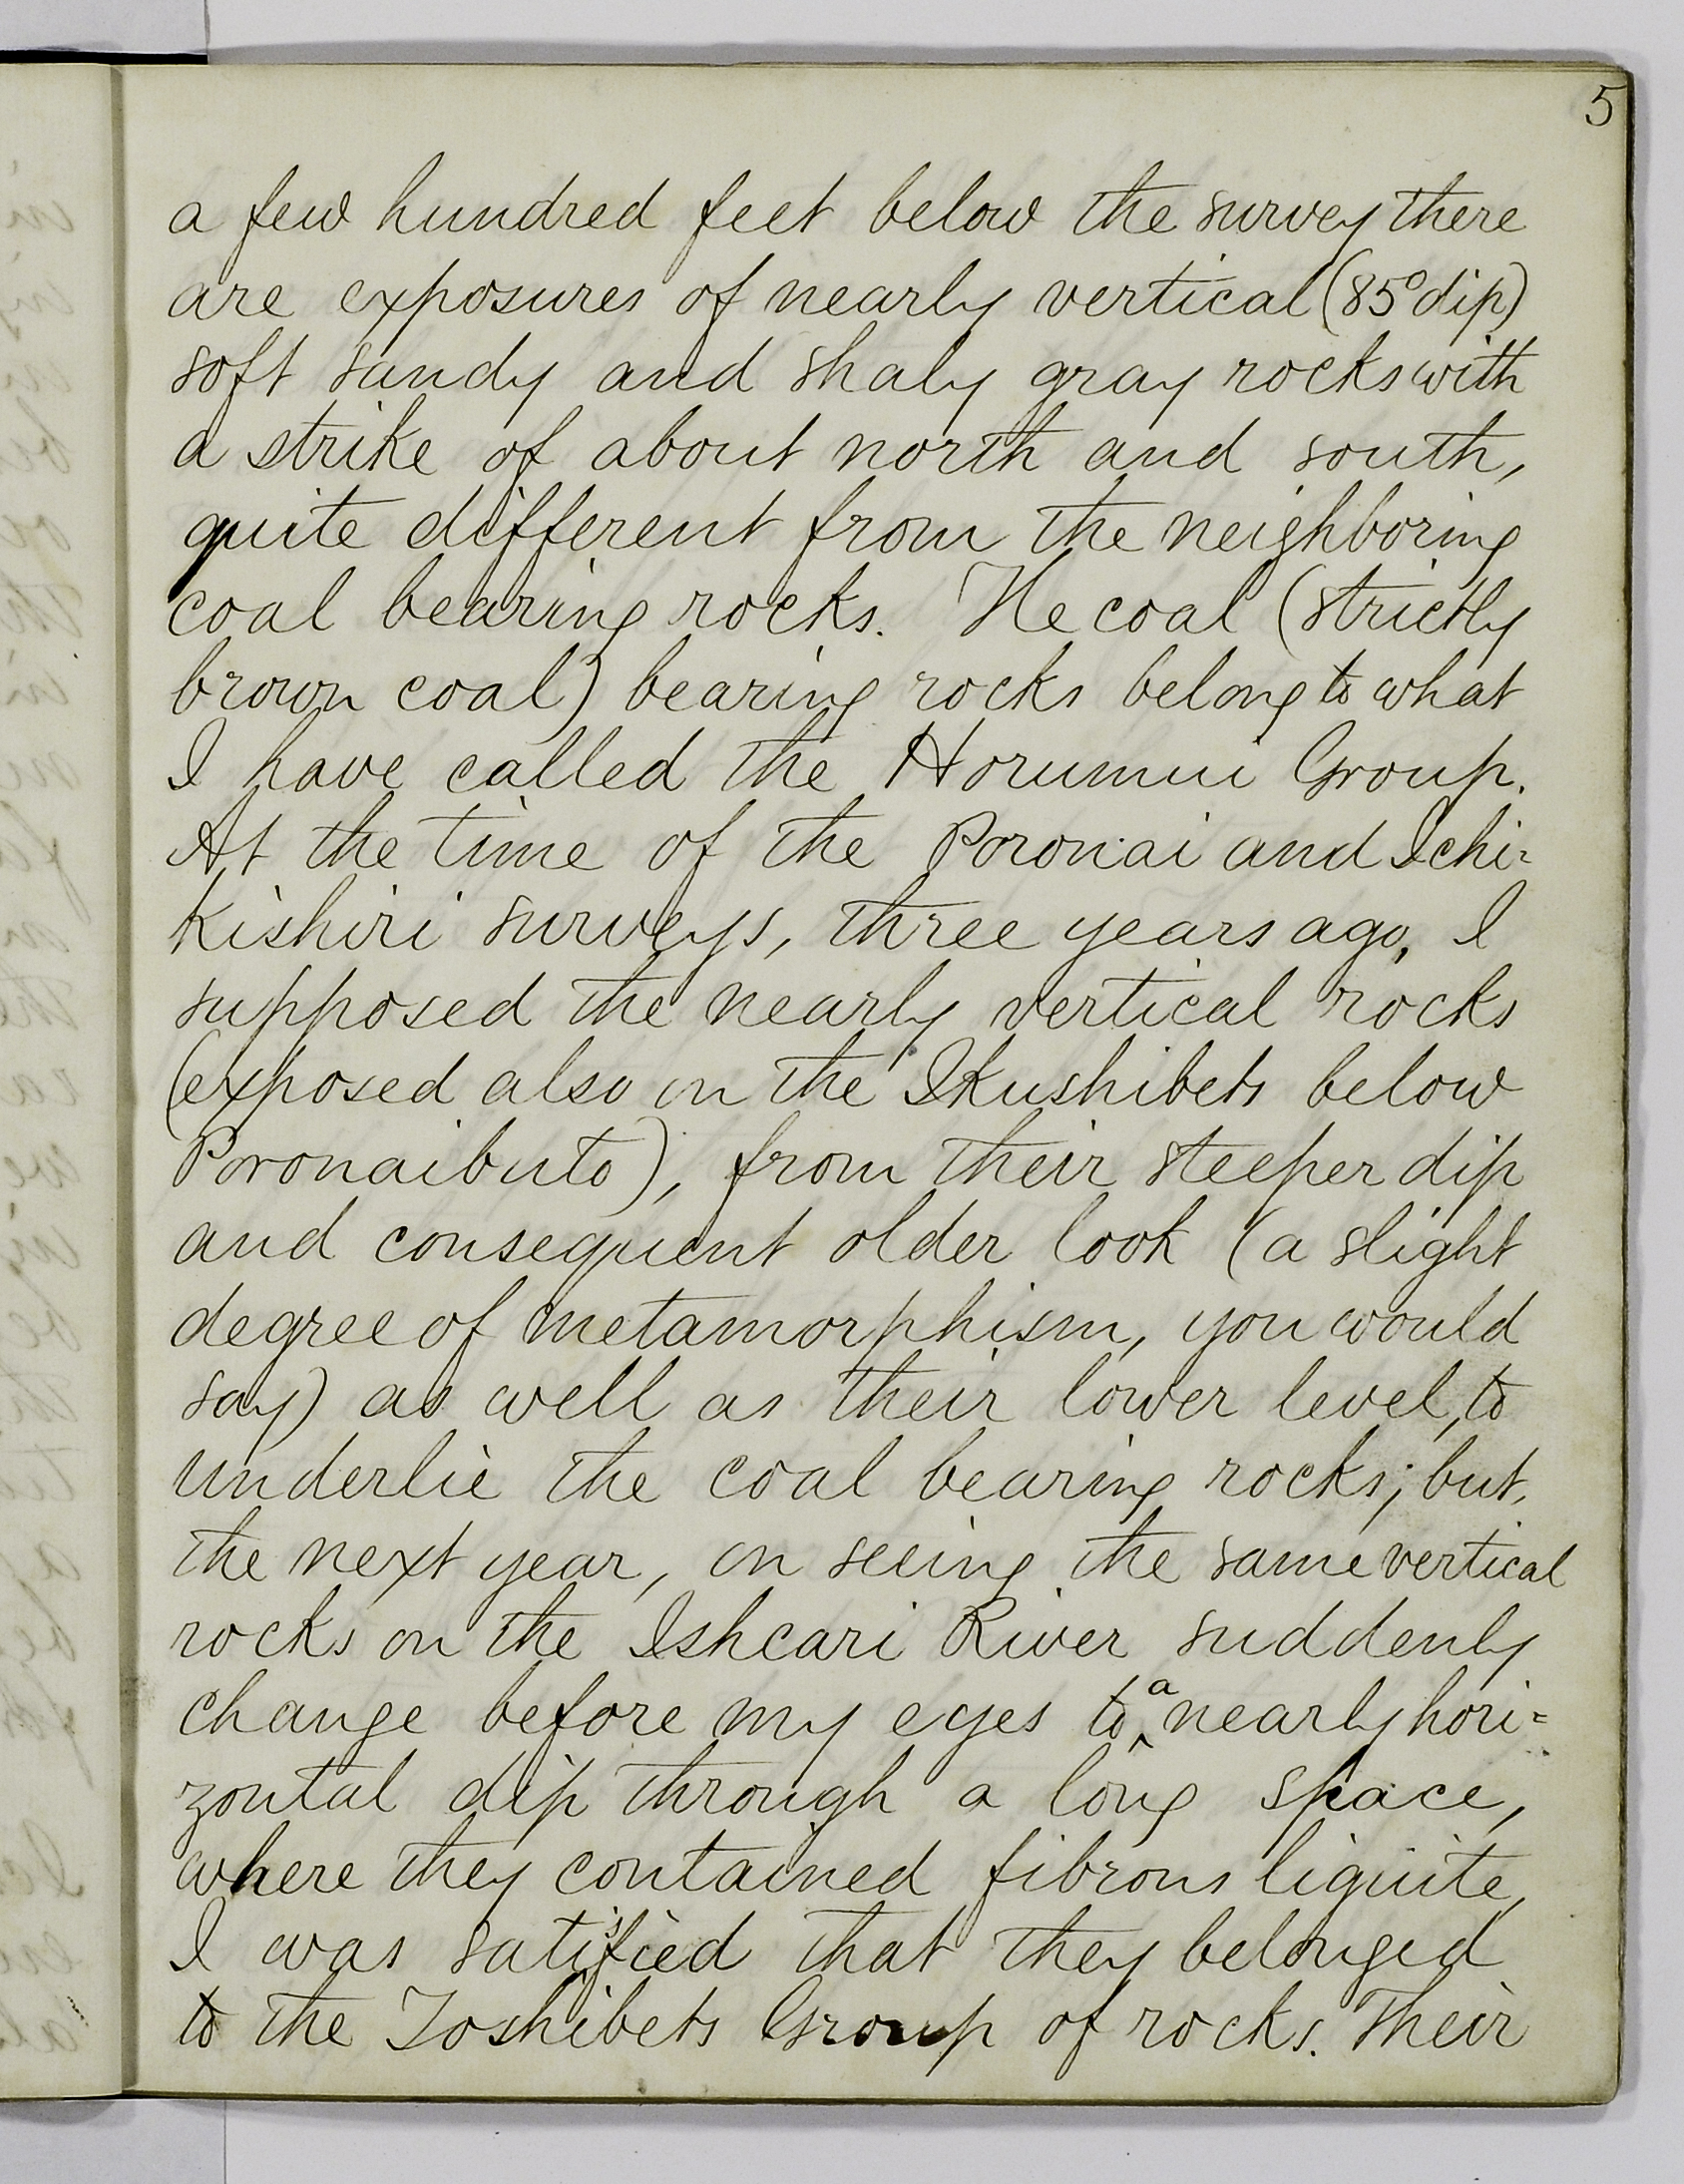 5
a few hundred feet below the survey there
are exposures of nearly vertical (85° dip)
soft sandy and shaly gray rocks with
a strike of about north and south,
quite different from the neighboring
coal bearing rocks. The coal (strictly
brown coal) bearing rocks belong to what
I have called the Horumui Group.
At the time of the Poronai and Ichi-
kishiri surveys, three years ago, I
supposed the nearly vertical rocks
(exposed also on the Ikushibets below
Poronaibuto), from their steeper dip
and consequent older look (a slight
degree of metamorphism, you would
say) as well as their lower level, to
underlie the coal bearing rocks; but,
the next year, on seeing the same vertical
rocks on the Ishcari River suddenly
change before my eyes to a nearly hori-
zontal dip through a long space,
where they contained fibrous lignite,
I was satisfied that they belonged
to the Toshibets Group of rocks. Their